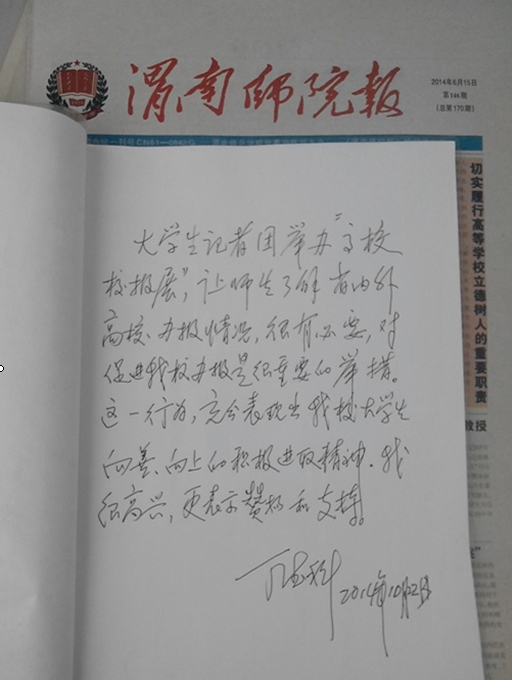 渭南师院报
2014年6月15日
第146期
(总第170期)
切实履行高等学校立德树人的重要职责
教授
大学生记者团举办“高校
校报展”，让师生了解省内外
高校办报情况，很有必要，对
促进我校办报是很重要的举措。
这一行为，充分表现出我校大学生
向善、向上的积极进取精神。我
很高兴，更表示赞扬和支持。
丁德科
2014年10月22日